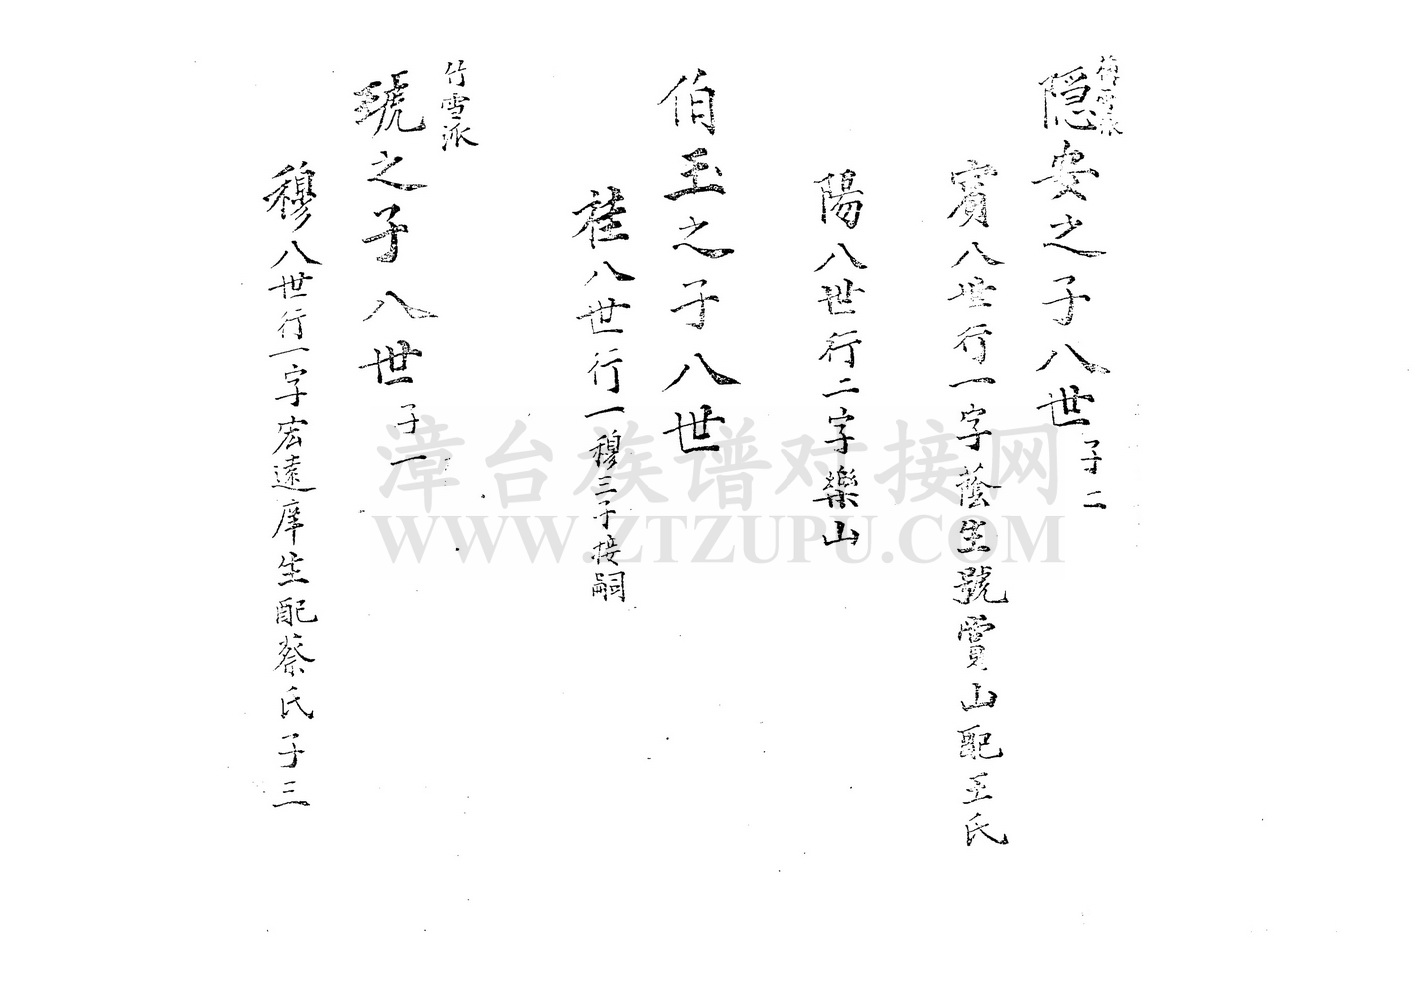 梅雪派
隱安之子八世 子二
賓八世行一字蔭生號賞山配王氏
陽八世行二字樂山
伯玉之子八世
八世行一穆三子接嗣
竹雪派
琥之子八世 子一
穆八世行一字宏遠庠生配蔡氏子三
漳台族谱对接网
WWW.ZTZUPU.COM